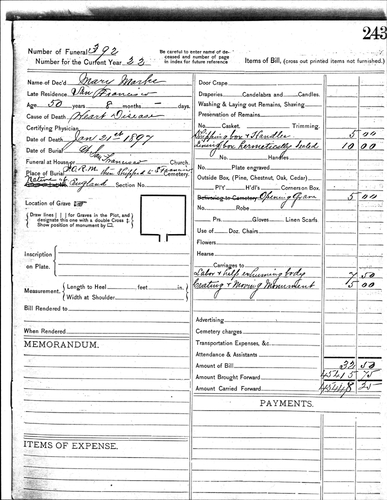 243
Number of Funeral 392
Number for the Current Year 22
Be careful to enter name of deceased and number of page in index for future reference
Name of Dec'd Mary
Late Residence, San Francisco
Age 50 years 8 months - days.
Cause of Death, Heart Disease
Certifying Physician,
Date of Death, Jan 21st 1897
Date of Burial,
Funeral at House San Francisco Church.
Place of Burial, then Shipped to S Francisco Cemetery.
Native of England Section No.
Location of Grave
Draw lines | | for Graves in the Plot, and designate this one with a double Cross
Show position of monument by
Inscription
on Plate.
Measurement.
Length to Heel feet in.
Width at Shoulder
Bill Rendered to
When Rendered
MEMORANDUM.
ITEMS OF EXPENSE.
Items of Bill, (cross out printed items not furnished.)
Door Crape
Draperies. Candelabras and Candles.
Washing & Laying out Remains, Shaving
Preservation of Remains
No. Casket, Trimming.
Shipping box & Handles 5 00
Lining box hermetically Sealed 10 00
No. Handles
No. Plate engraved
Outside Box, (Pine, Chestnut, Oak, Cedar)
No. P/Y H'd's Corners on Box.
Delivering to Cemetery Opening Grave 5 00
No. Robe
Prs. Gloves Linen Scarfs
Use of Doz. Chairs
Flowers
Hearse
Carriages to
Labor & help exhuming body 7 50
Crating & Moving Monument 5 00
Advertising
Cemetery charges
Transportation Expenses, &c.
Attendance & Assistants
Amount of Bill 32 50
Amount Brought Forward 45415 75
Amount Carried Forward 45448 25
PAYMENTS.